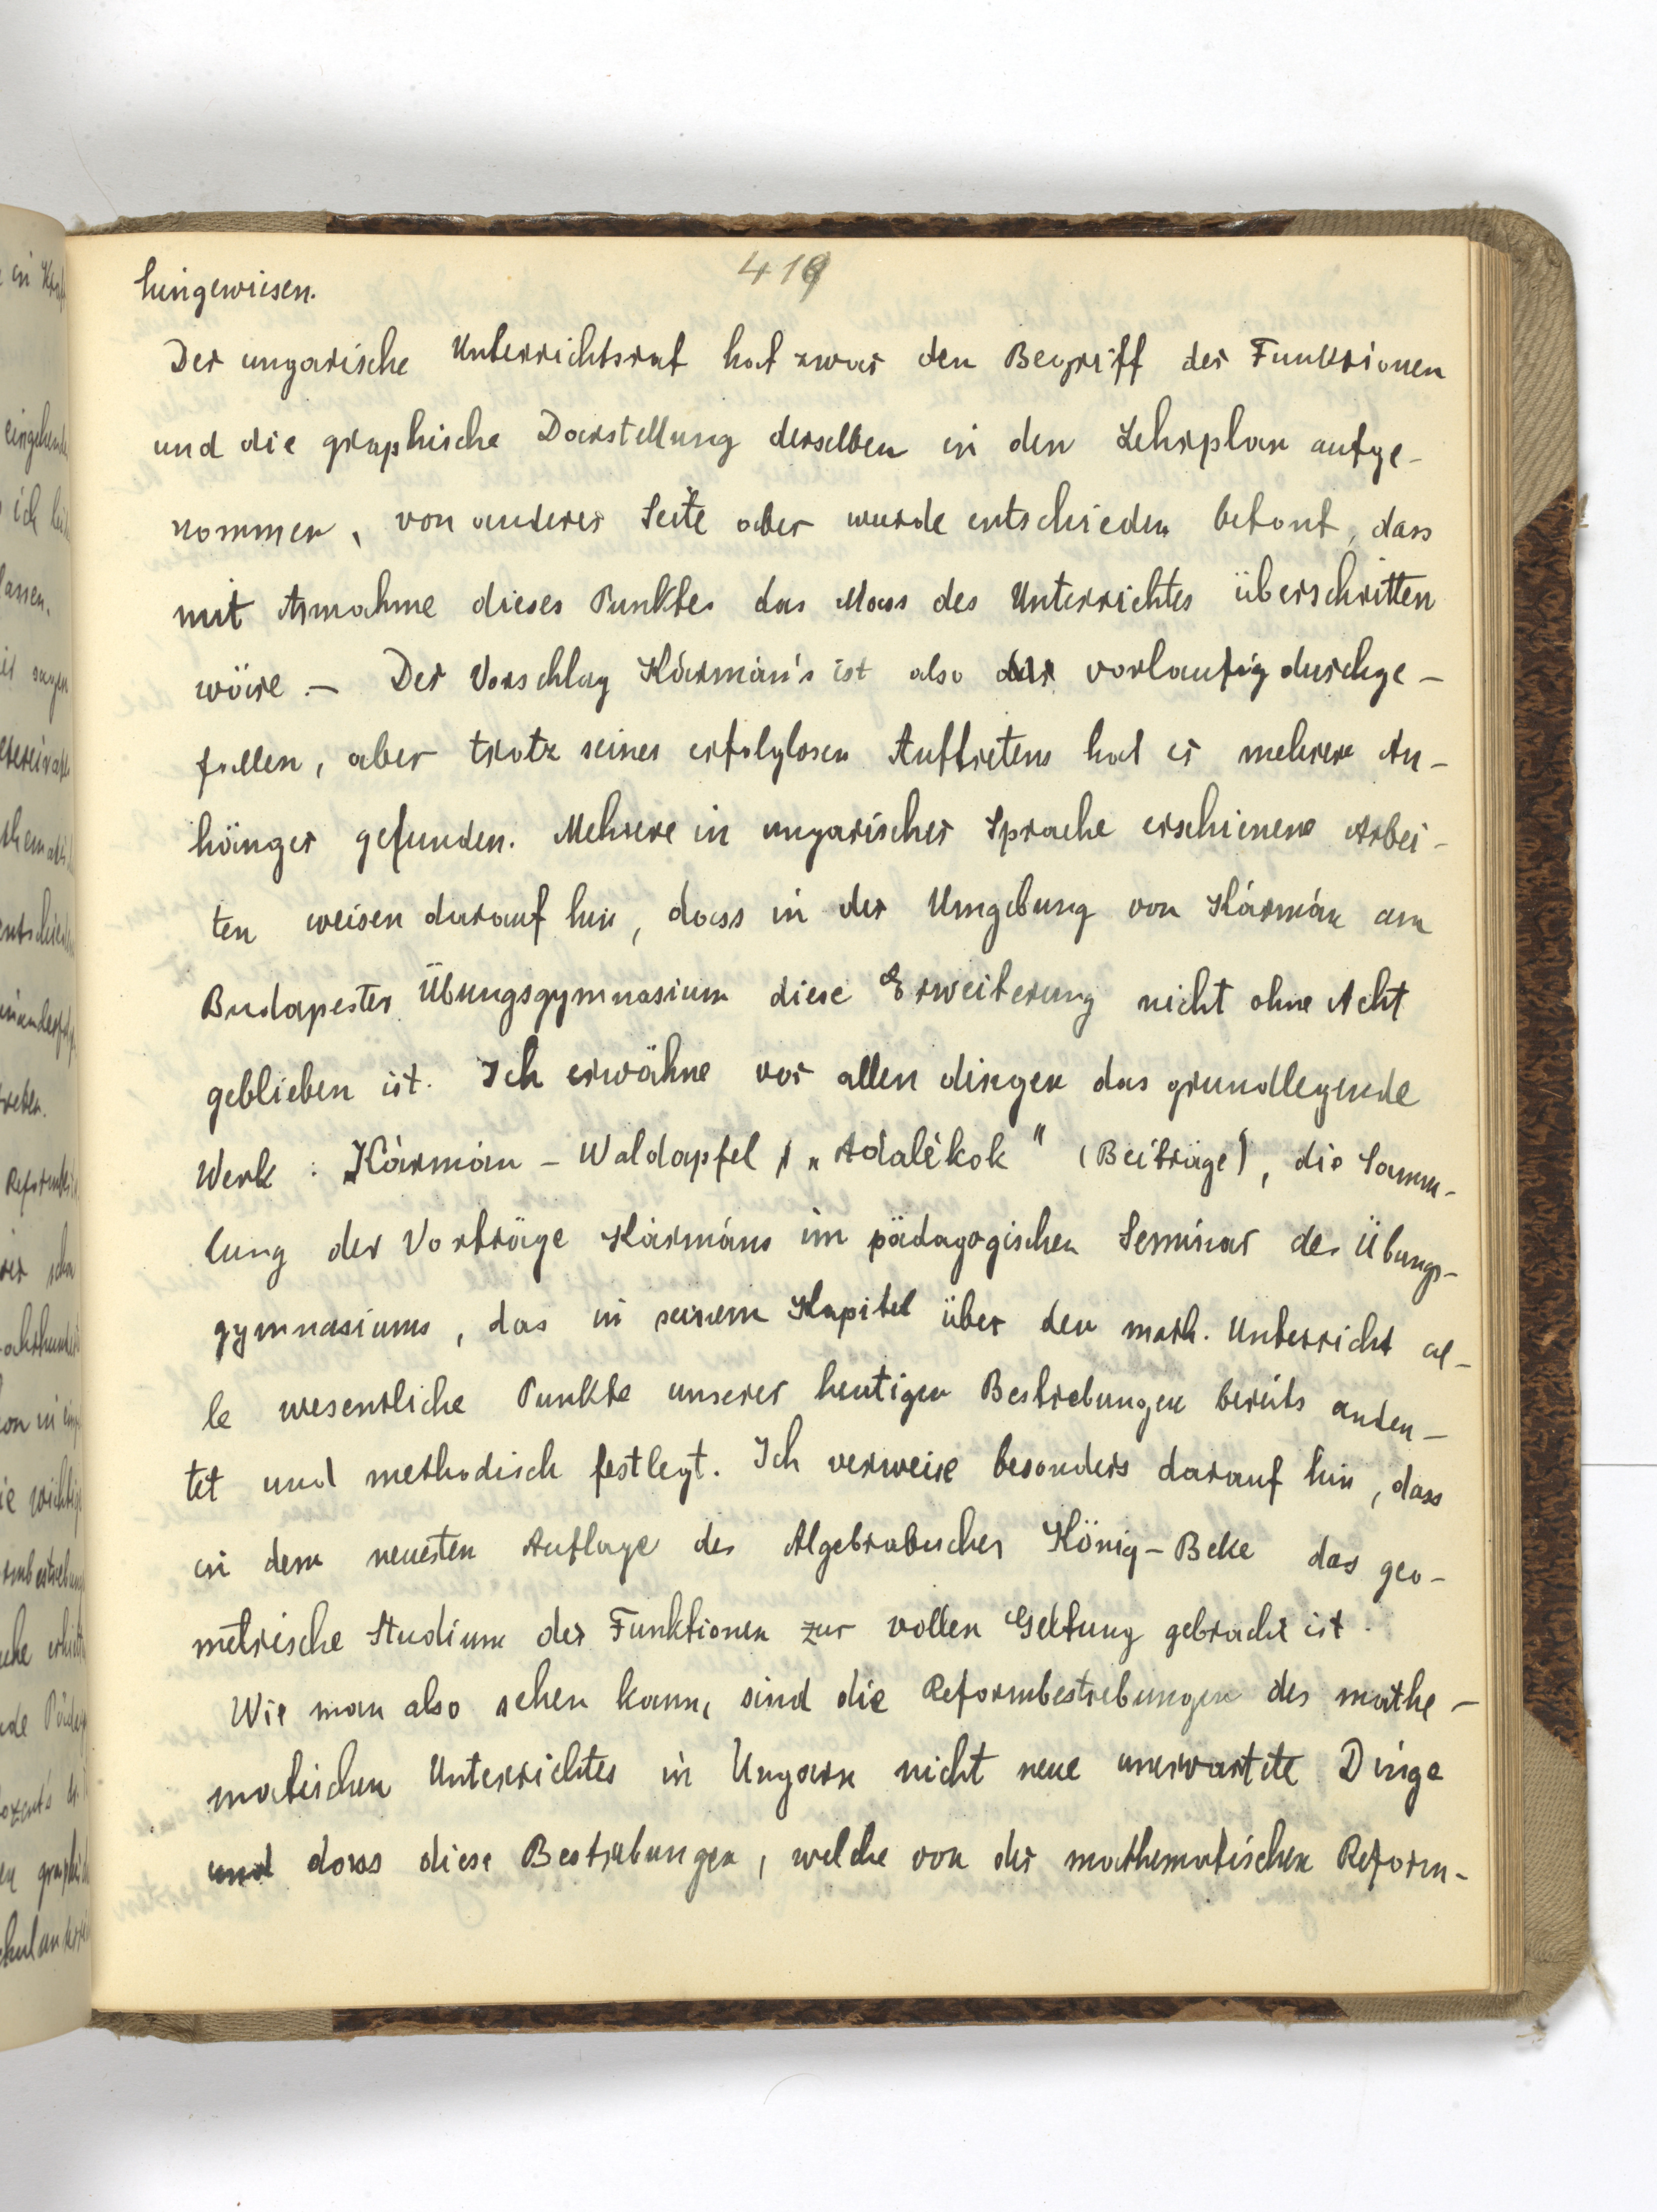 419
hingewiesen.
Der ungarische Unterrichtsrat hat zwar den Begriff der Funktionen
und die graphische Darstellung derselben in den Lehrplan aufge-
nommen, von anderer Seite aber wurde entschieden betont, dass
mit Annahme dieses Punktes das Mass des Unterrichtes überschritten
wäre. — Der Vorschlag Kármán's ist also vorlaufig durchge-
fallen, aber trotz seines erfolglosen Auftretens hat er mehrere An-
hänger gefunden. Mehrere in ungarischer Sprache erschienene Arbei-
ten weisen darauf hin, dass in der Umgebung von Kármán am
Budapester Übungsgymnasium diese Erweiterung nicht ohne Acht
geblieben ist. Ich erwähne vor allen dingen das grundlegende
Werk : Kármán - Waldapfel „Adalékok" (Beiträge), die Samm-
lung der Vorträge Kármáns im pädagogischen Seminar des Übungs-
gymnasiums, das in seinem Kapitel über den math. Unterricht al-
le wesentliche Punkte unserer heutigen Bestrebungen bereits andeu-
tet und methodisch festlegt. Ich verweise besonders darauf hin, dass
in dem neuesten Auflage des Algebrabuches König-Beke das geo-
metrische Studium der Funktionen zur vollen Geltung gebracht ist.
Wie man also sehen kann, sind die Reformbestrebungen des mathe-
matischen Unterrichtes in Ungarn nicht neue unerwartete Dinge
und dass diese Bestrebungen, welche von der mathematischen Reform-